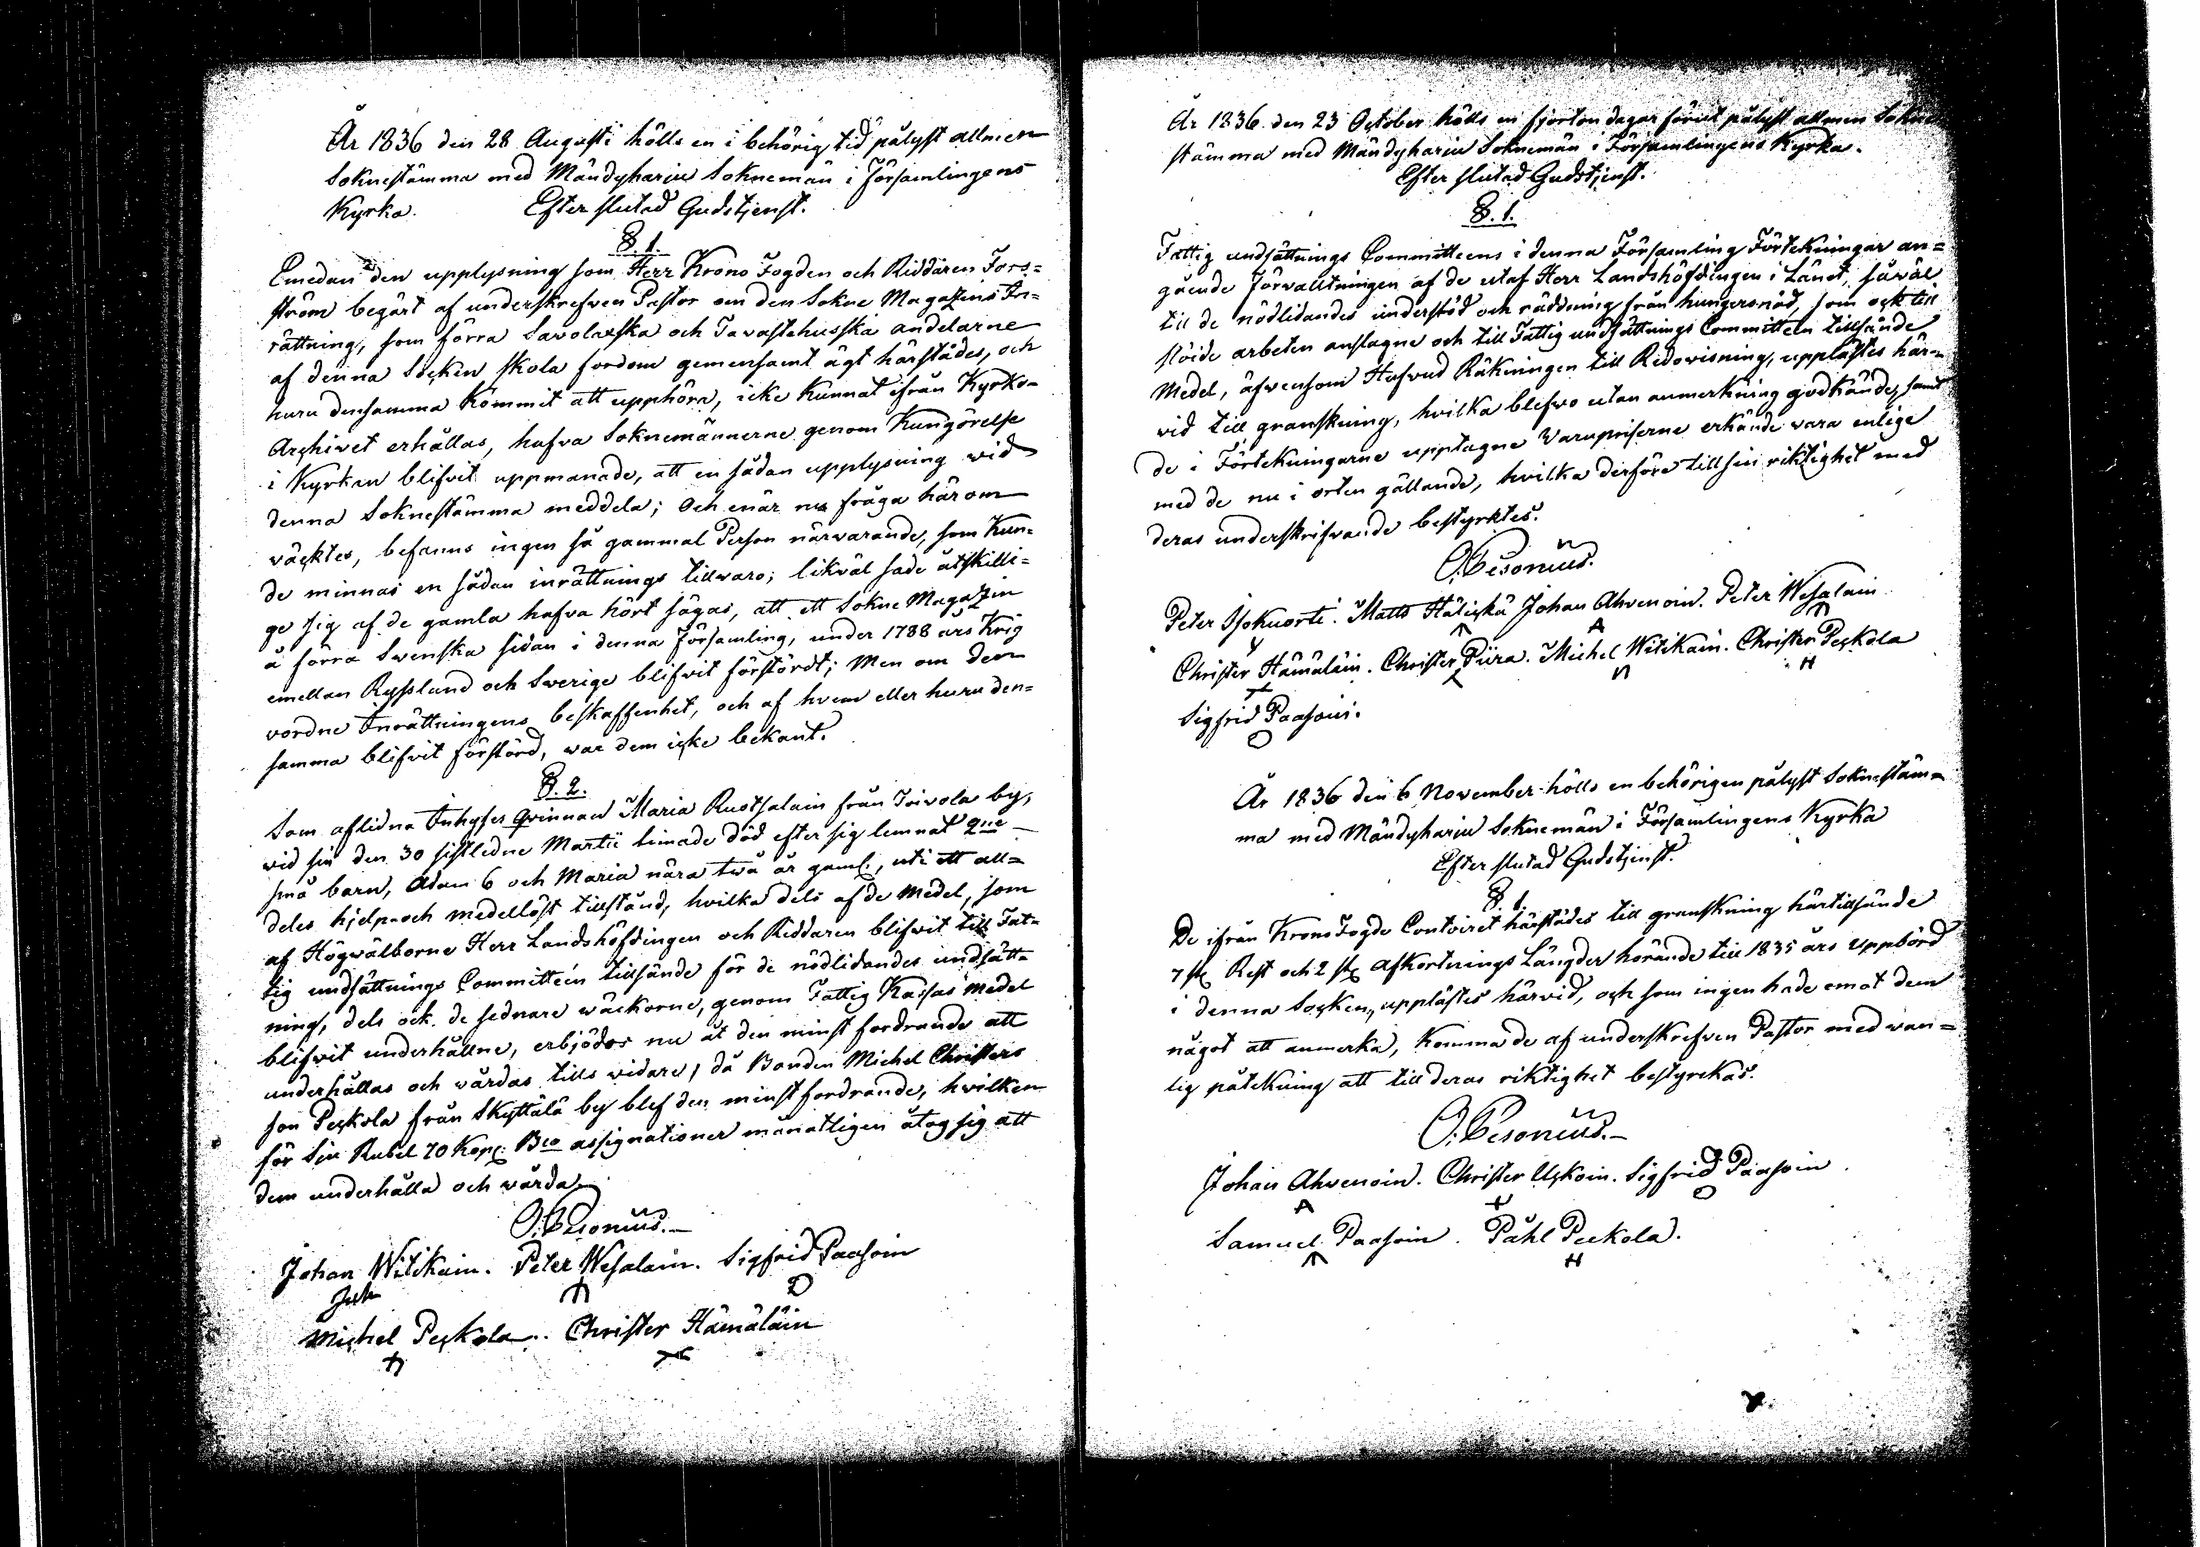 År 1836 den 28 Augusti hölls en i behörig tid pålyst allmen
Soknestämma med Mändyharju Soknemän i Församlingens
Kyrka. Efter slutad Gudstjenst.
§. 1.
Emedan den upplysning som Herr Krono Fogden och Riddaren Fors-
ström begärt af underskrefven Pastor om den Sokne Magazins In-
rättning, som förra Savolaxska och Tavastehusska andelarne
af denna Socken skola fordom gemensamt ägt härstädes, och
huru densamma kommit att upphöra, icke kunnat ifrån Kyrko-
Archivet erhållas, hafva Soknemännerne genom Kungörelse
i Kyrkan blifvit uppmanade, att en sådan upplysning wid
denna Soknestämma meddela; Och enär nu fråga härom
väcktes, befanns ingen så gammal Person närvarande, som kun-
de minnas en sådan inrättnings tillvaro; likväl sade åtskilli-
ge sig af de gamla hafva hört sägas, att ett Sokne Magazin
å förra Swenska sidan i denna Församling, under 1788 års Krig
emellan Ryssland och Sverige blifvit förstördt; Men om den
vordne Inrättningens beskaffenhet, och af hvem eller huru den-
samma blifvit förstörd, war dem icke bekant.
§. 2.
Som aflidna Inhyses Qvinnan Maria Ruotsalain från Toivola by,
vid sin den 30 sistledne Martii timade död efter sig lemnat 2ne
små barn, Adam 6 och Maria nära twå år gaml, uti ett all-
deles hjelp- och medellöst tillstånd, hvilka dels af de Medel, som
af Högwälborne Herr Landshöfdingen och Riddaren blifvit till Fat-
tig undsättnings Committéen tillsände för de nödlidandes undsätt-
ning, dels ock de sednare wäckorne, genom Fattig Kassas medel
blifvit underhållne, erbjödos nu åt den minst fordrande att
underhållas och vårdas tills vidare, då Bonden Michel Christers
son Peckola från Skyttälä by blef den minst fordrande, hvilken
för Sju Rubel 70 Kop. Bco assignationer månatligen åtog sig att
dem underhålla och vårda.
O. Pesonius.
Johan Witikain. Peter Wesalain. Sigfrid Paasoin
Michel Peckola. Christer Hämäläin
År 1836 den 23 October hölls en fjorton dagar förut pålyst allmen Sokne
stämma med Mändyharju Soknemän i Församlingens Kyrka.
Efter slutad Gudstjenst.
§. 1.
Fattig undsättnings Committeens i denna Församling Förtekningar an-
gående förvaltningen af de utaf Herr Landshöfdingen i Länet, såväl
till de nödlidandes understöd och räddning från hungersnöd, som ock till
slöide arbeten anslagne och till Fattig undsättnings Committeen tillsände
Medel, äfvensom Hufvud Räkningen till Redovisning, upplästes här-
vid till granskning, hvilka blefvo utan anmerkning godkände, samt
de i Förtekningarne upptagne Varupriserne erkände vara enlige
med de nu i orten gällande, hvilka derföre till sin riktighet med
deras underskrifvande bestyrktes.
O. Pesonius.
Peter Isokuorti. Matts Häliskä Johan Ahvenoin. Peter Wesalain
Christer Hämäläin. Christer Piira. Michel Witikain. Christer Peckola
Sigfrid Paasoin.
År 1836 den 6 November hölls en behörigen pålyst Soknestäm-
ma med Mändyharju Soknemän i Församlingens Kyrka
Efter slutad Gudstjenst.
§. 1.
De ifrån Krono Fogde Contoiret härstädes till granskning härtillsände
7 st Rest och 2 st Afkortnings Längder hörande till 1835 års Uppbörd
i denna Socken, upplästes härvid, och som ingen hade emot dem
något att anmerka, komma de af underskrefven Pastor med wan-
lig påtekning att till deras riktighet bestyrckas.
O. Pesonius.
Johan Ahvenoin. Christer Uskoin. Sigfrid Paasoin
Samuel Paasoin. Påhl Peckola.